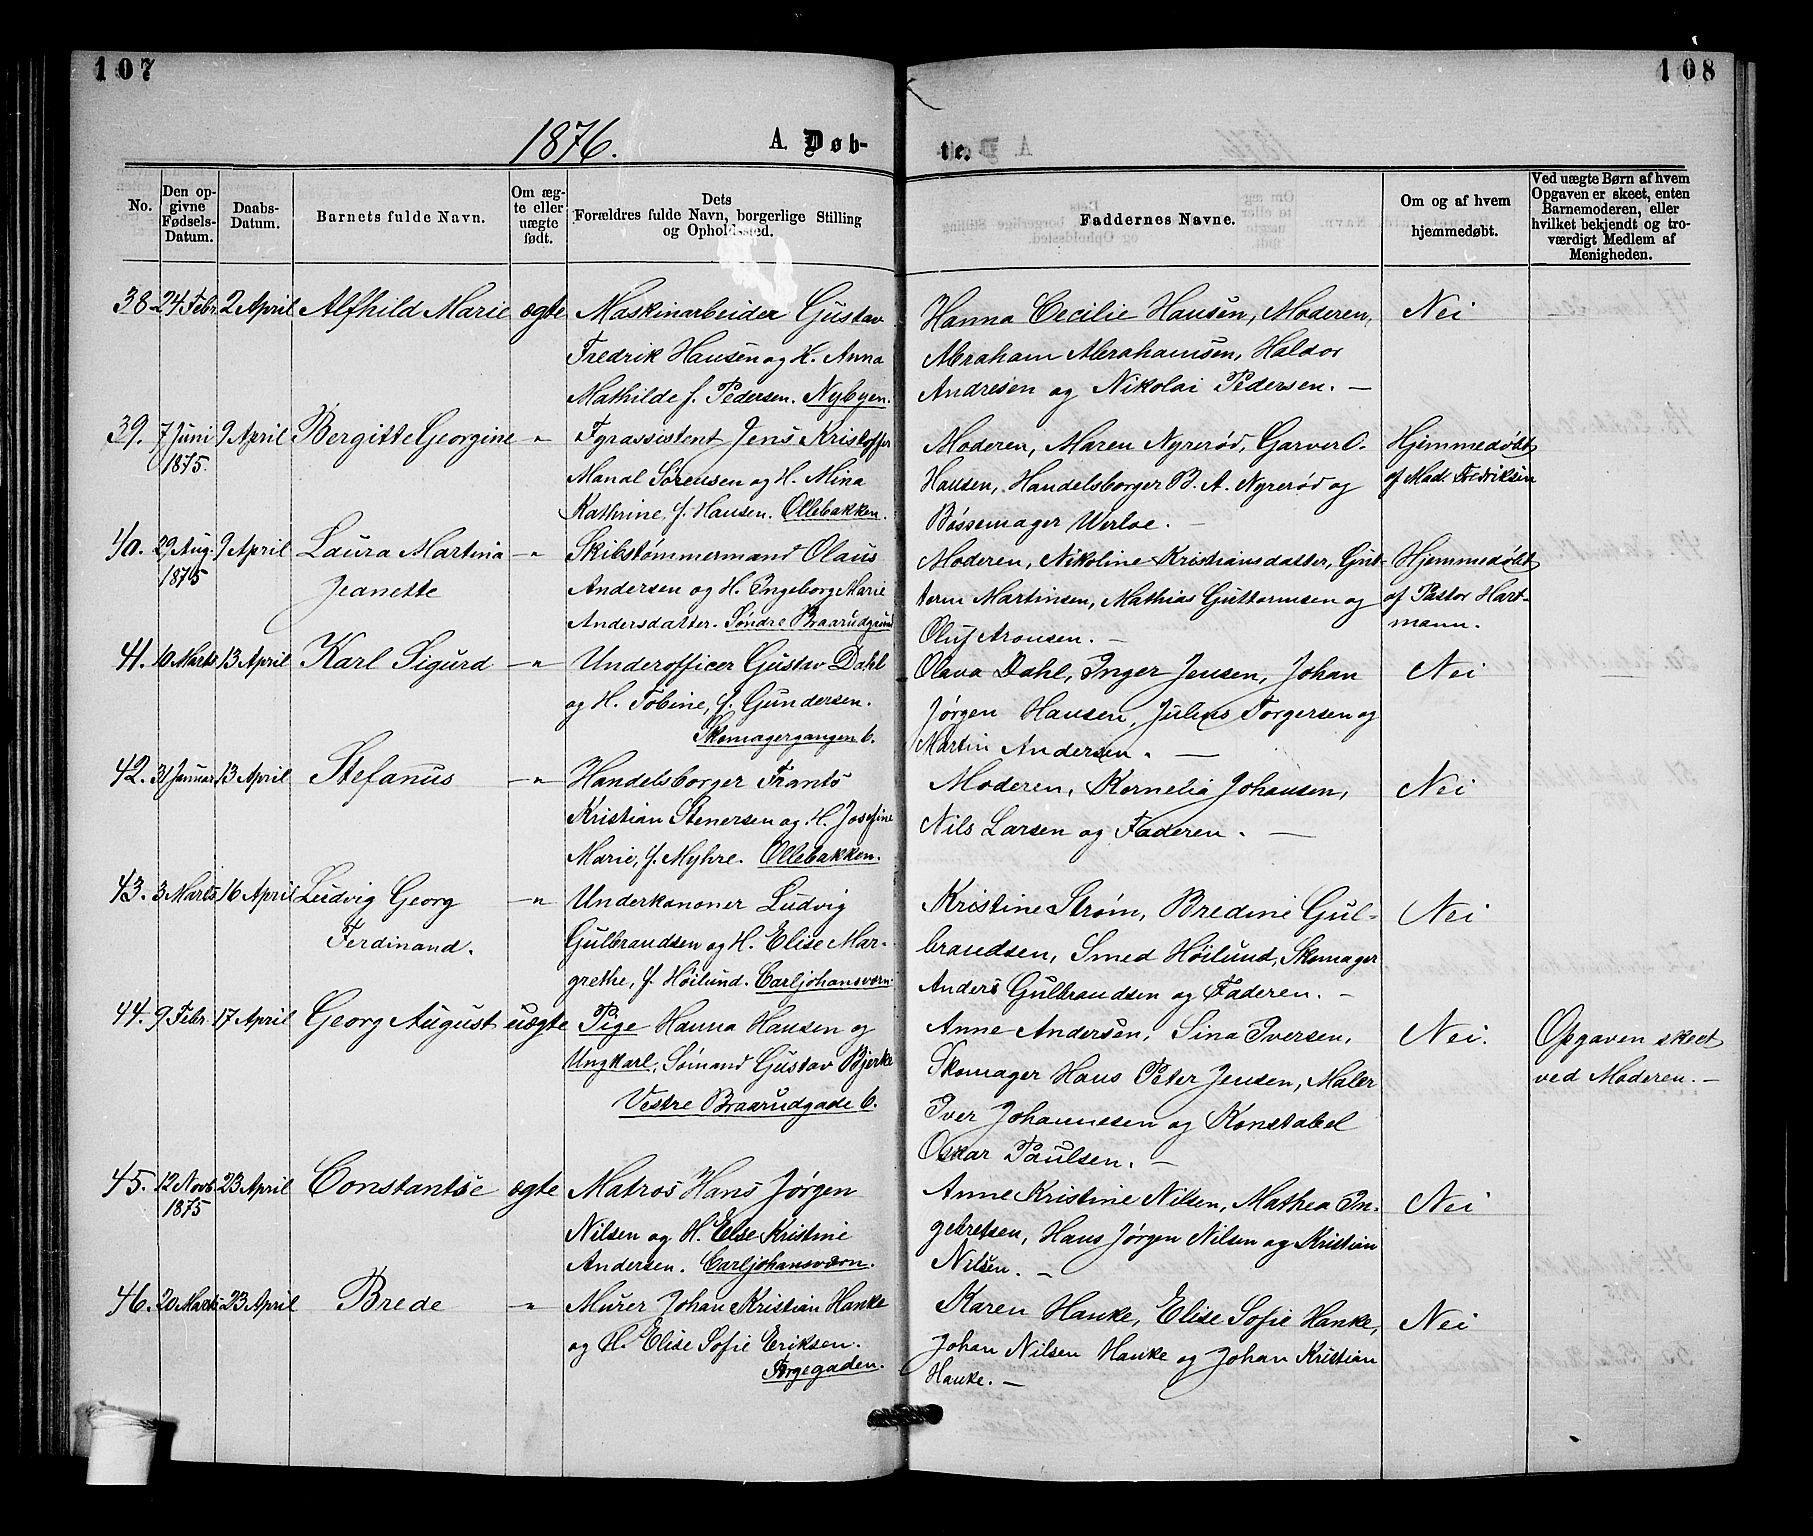 107
108
1876. A. Døb- te.
No.
Den op-
givne
Fødsels-
Datum.
Daabs-
Datum.
Barnets fulde Navn.
Om æg-
te eller
uægte
født.
Dets
Forældres fulde Navn, borgerlige Stilling
og Opholdssted.
Faddernes Navne.
Om og af hvem
hjemmedøbt.
Ved uægte Børn af hvem
Opgaven er skeet, enten
Barnemoderen, eller
hvilket bekjendt og tro-
værdigt Medlem af
Menigheden.
38. 24 Febr. 2 April Alfhild Marie ægte Maskinarbeider Gustav
Fredrik Hansen og H. Anna
Mathilde f. Pedersen. Nybyen.
Hanna Cecilie Hansen, Moderen,
Abraham Abrahamsen, Haldor
Andresen og Nikolai Pedersen. —
Nei
39. 7 Juni 9 April Bergitte Georgine -"- Fyrassistent Jens Kristoffer
1875.
Manal Sørensen og H. Mina
Kathrine, f. Hansen. Ollebakken.
Moderen, Maren Nyrerød, Garver O.
Hansen, Handelsborger B. A. Nyrerød og
Bøssemager Werloe. —
Hjemmedøbt
af Mad. Fredriksen
40. 29 Aug. 9 April Laura Martina -"- Skibstømmermand Olaus
1875
Jeanette
Andersen og H. Ingeborg Marie
Andersdatter. Søndre Braarudgrund
Moderen, Nikoline Kristiansdatter, Gut-
term Martinsen, Mathias Guttormsen og
Oluf Aronsen. —
Hjemmedøbt
af Pastor Hart-
mann.
41. 10 Marts 13 April Karl Sigurd -"- Underofficer Gustav Dahl
og H. Tobine, f. Gundersen.
Skomagergangen 6.
Olava Dahl, Inger Jensen, Johan
Jørgen Hansen, Julius Torgersen og
Martin Andersen. —
Nei
42. 31 Januar 13 April Stefanus -"- Handelsborger Frants
Kristian Stenersen og H. Josefine
Marie, f. Myhre. Ollebakken.
Moderen, Kornelia Johansen,
Nils Larsen og Faderen. —
Nei
43. 3 Marts 16 April Ludvig Georg -"- Underkanoner Ludvig
Ferdinand.
Gulbrandsen og H. Elise Mar-
grethe, f. Høilund. Carljohansværn
Kristine Strøm, Bredine Gul-
brandsen, Smed Høilund, Skomager
Anders Gulbrandsen og Faderen. —
Nei
44. 9 Febr. 17 April Georg August uægte Pige Hanna Hansen og
Ungkarl, Sømand Gustav Bjerke
Vestre Braarudgade 6.
Anne Andersen, Sina Iversen,
Skomager Hans Peter Jensen, Maler
Iver Johannesen og Konstabel
Oskar Paulsen. —
Nei.
Opgaven skeet
ved Moderen. —
45. 12 Novb. 23 April Constantse ægte Matros Hans Jørgen
1875
Nilsen og H. Else Kristine
Andersen. Carljohansværn.
Anne Kristine Nilsen, Mathea In-
gebretsen, Hans Jørgen Nilsen og Kristian
Nilsen. —
Nei
46. 20 Marts 23 April Brede " Murer Johan Kristian Hanke
og H. Elise Sofie Eriksen.
Torgegaden.
Karen Hanke, Elise Sofie Hanke,
Johan Nilsen Hanke og Johan Kristian
Hanke. —
Nei